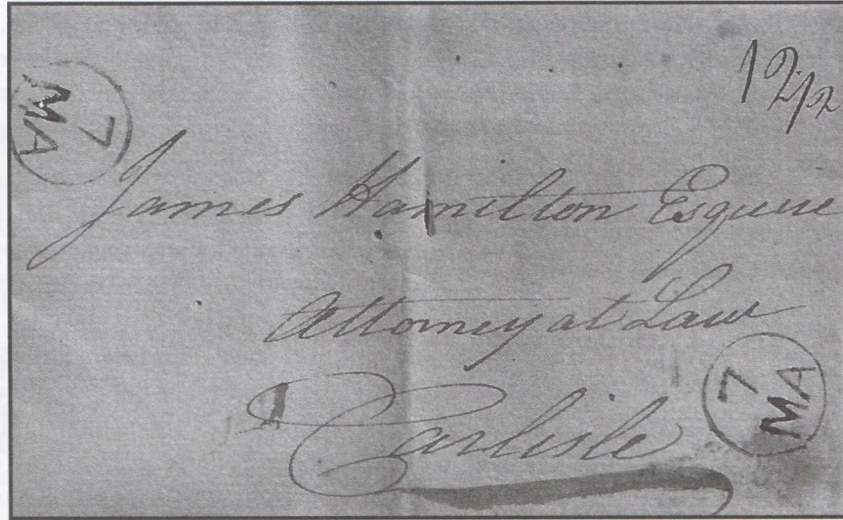 12/12
7
MA
James Hamilton Esquire
Attorney at Law
Carlisle
7
MA